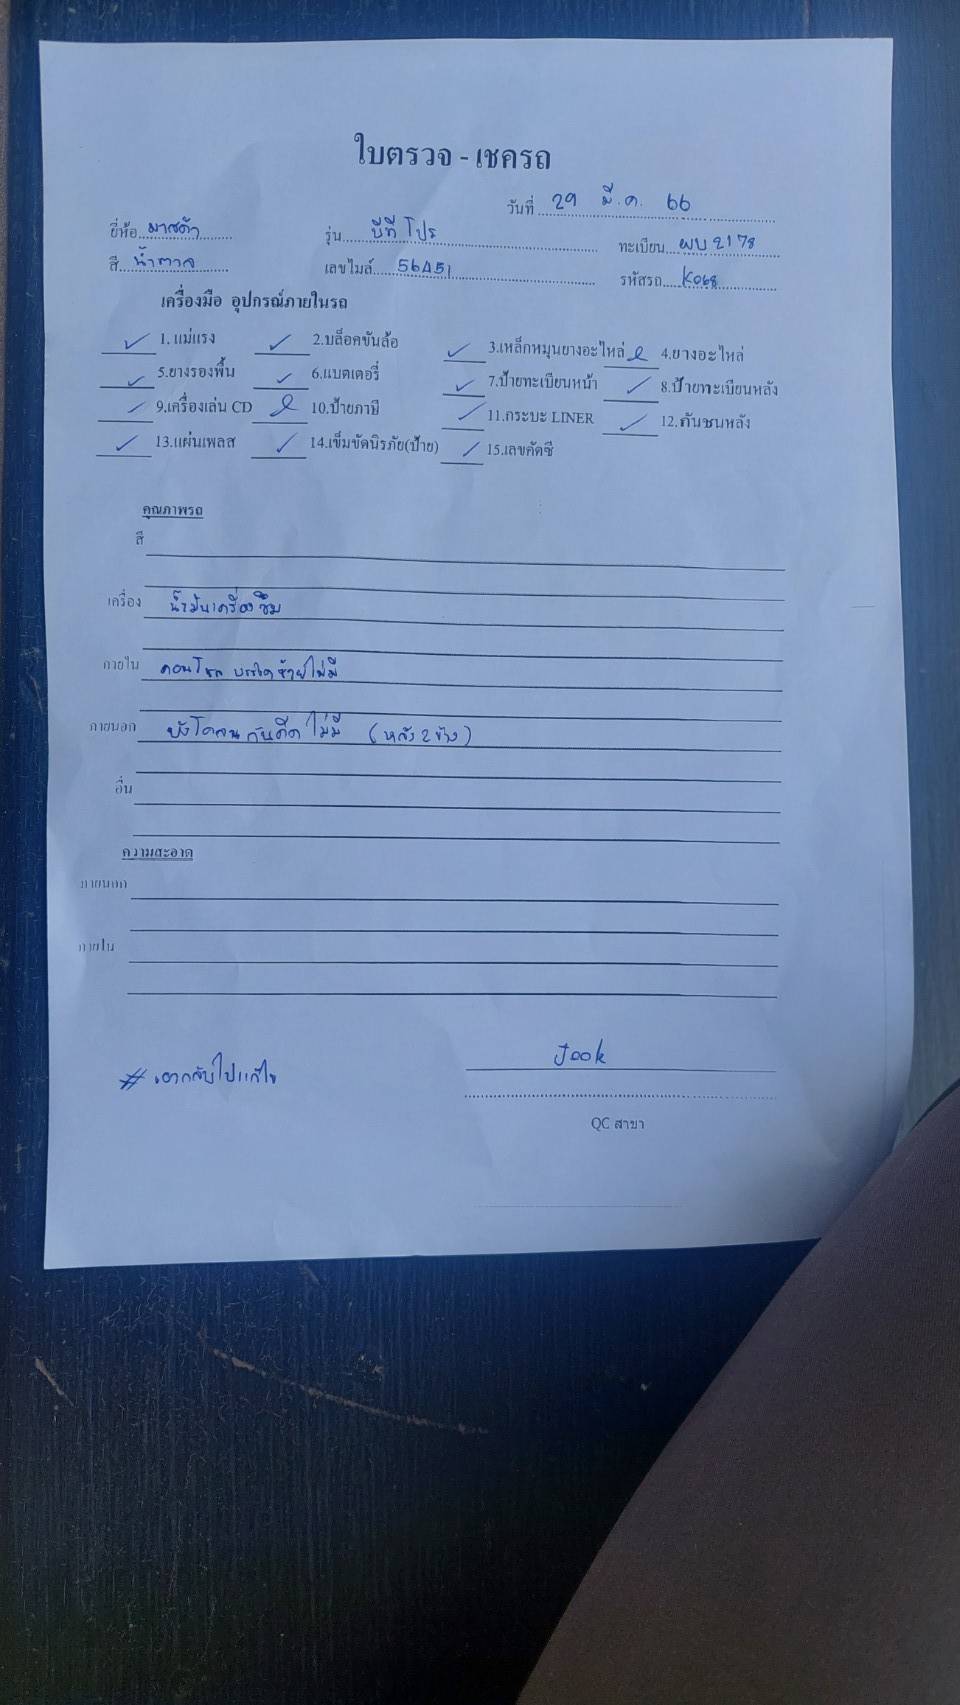 ใบตรวจ - เชครถ
วันที่ 29 มี.ค. 66
ยี่ห้อ มาสด้า รุ่น บีที โปร ทะเบียน ผบ 2178
สี น้ำตาล เลขไมล์ 56451 รหัสรถ K068
เครื่องมือ อุปกรณ์ภายในรถ
✓ 1. แม่แรง ✓ 2.บล็อคขันล้อ ✓ 3.เหล็กหมุนยางอะไหล่ 4.ยางอะไหล่
✓ 5.ยางรองพื้น ✓ 6.แบตเตอรี่ ✓ 7.ป้ายทะเบียนหน้า ✓ 8.ป้ายทะเบียนหลัง
✓ 9.เครื่องเล่น CD 10.ป้ายภาษี ✓ 11.กระบะ LINER ✓ 12.กันชนหลัง
✓ 13.แผ่นเพลส ✓ 14.เข็มขัดนิรภัย(ป้าย) ✓ 15.เลขคัดซี
คุณภาพรถ
สี
เครื่อง น้ำมันเครื่องซึม
ภายใน คอนโซล ซ้ายไม่มี
ภายนอก บังโคลน กันดีด ไม่มี (หลัง 2 ข้าง)
อื่น
ความสะอาด
ภายนอก
ภายใน
Jook
# เอากลับไปแก้ไข
QC สาขา